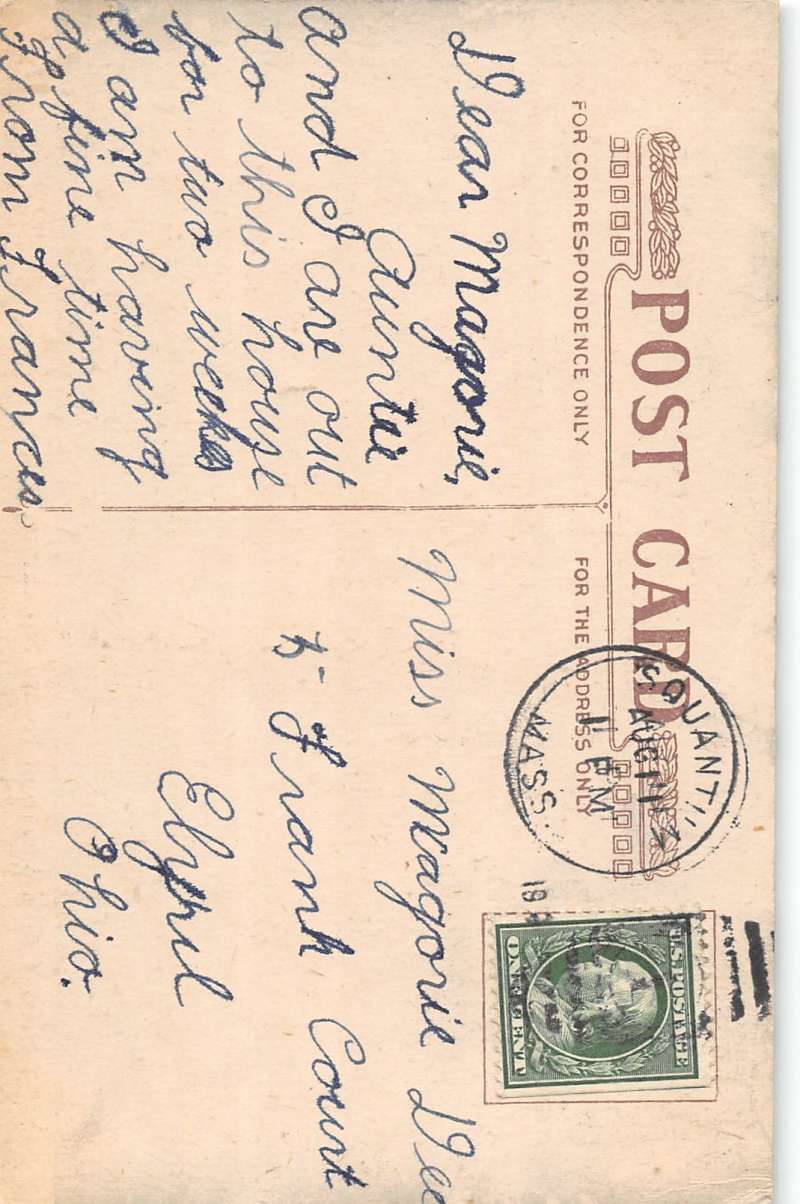 POST CARD
FOR CORRESPONDENCE ONLY
FOR THE ADDRESS ONLY
Dear Magorie,
Auntie
and I are out
to this house
for two weeks
I am having
a fine time
From Frances
Miss Magorie De
5- Frank Court
Elyril
Ohio.
SQUANTU
AUG 11
11 PM
MASS.
19
U.S. POSTAGE
ONE CENT